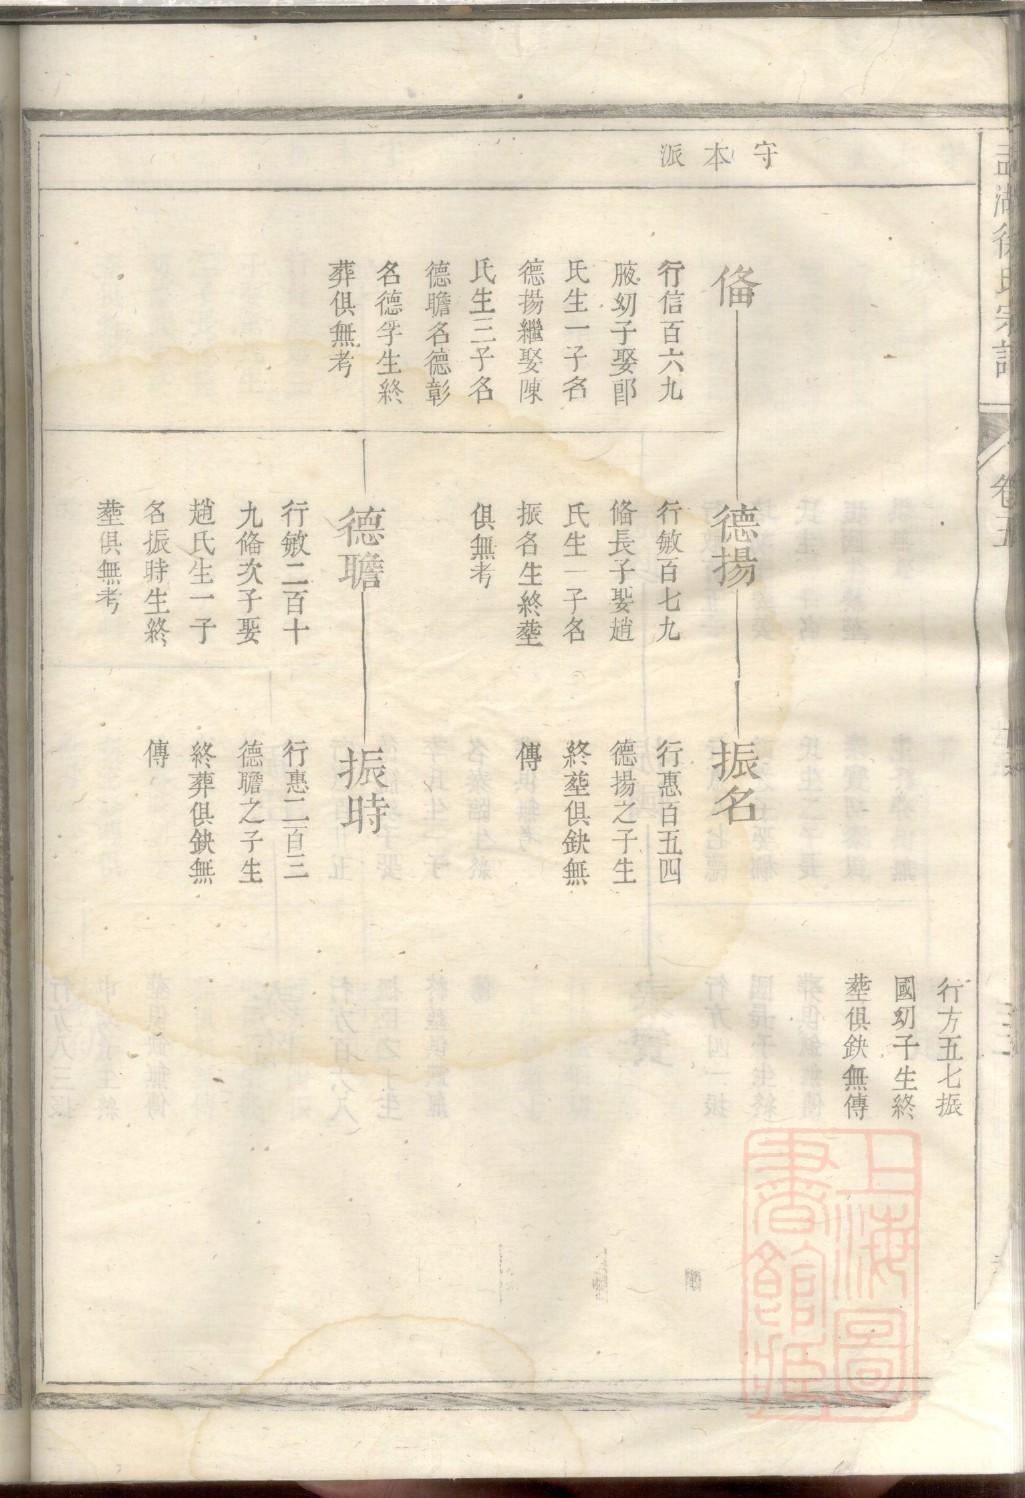 守本派
湖徐氏宗譜
卷五
行方五七振
國幼子生終
塟俱鈌無傳
俻
行信百六九
腋幼子娶郎
氏生一子名
德揚繼娶陳
氏生三子名
德瞻名德彰
名德孚生終
葬俱無考
德揚
行敏百七九
俻長子娶趙
氏生一子名
振名生終塟
俱無考
振名
行惠百五四
德揚之子生
終塟俱鈌無
傳
德瞻
行敏二百十
九俻次子娶
趙氏生一子
名振時生終
塟俱無考
振時
行惠二百三
德瞻之子生
終葬俱鈌無
傳
上海圖書館藏